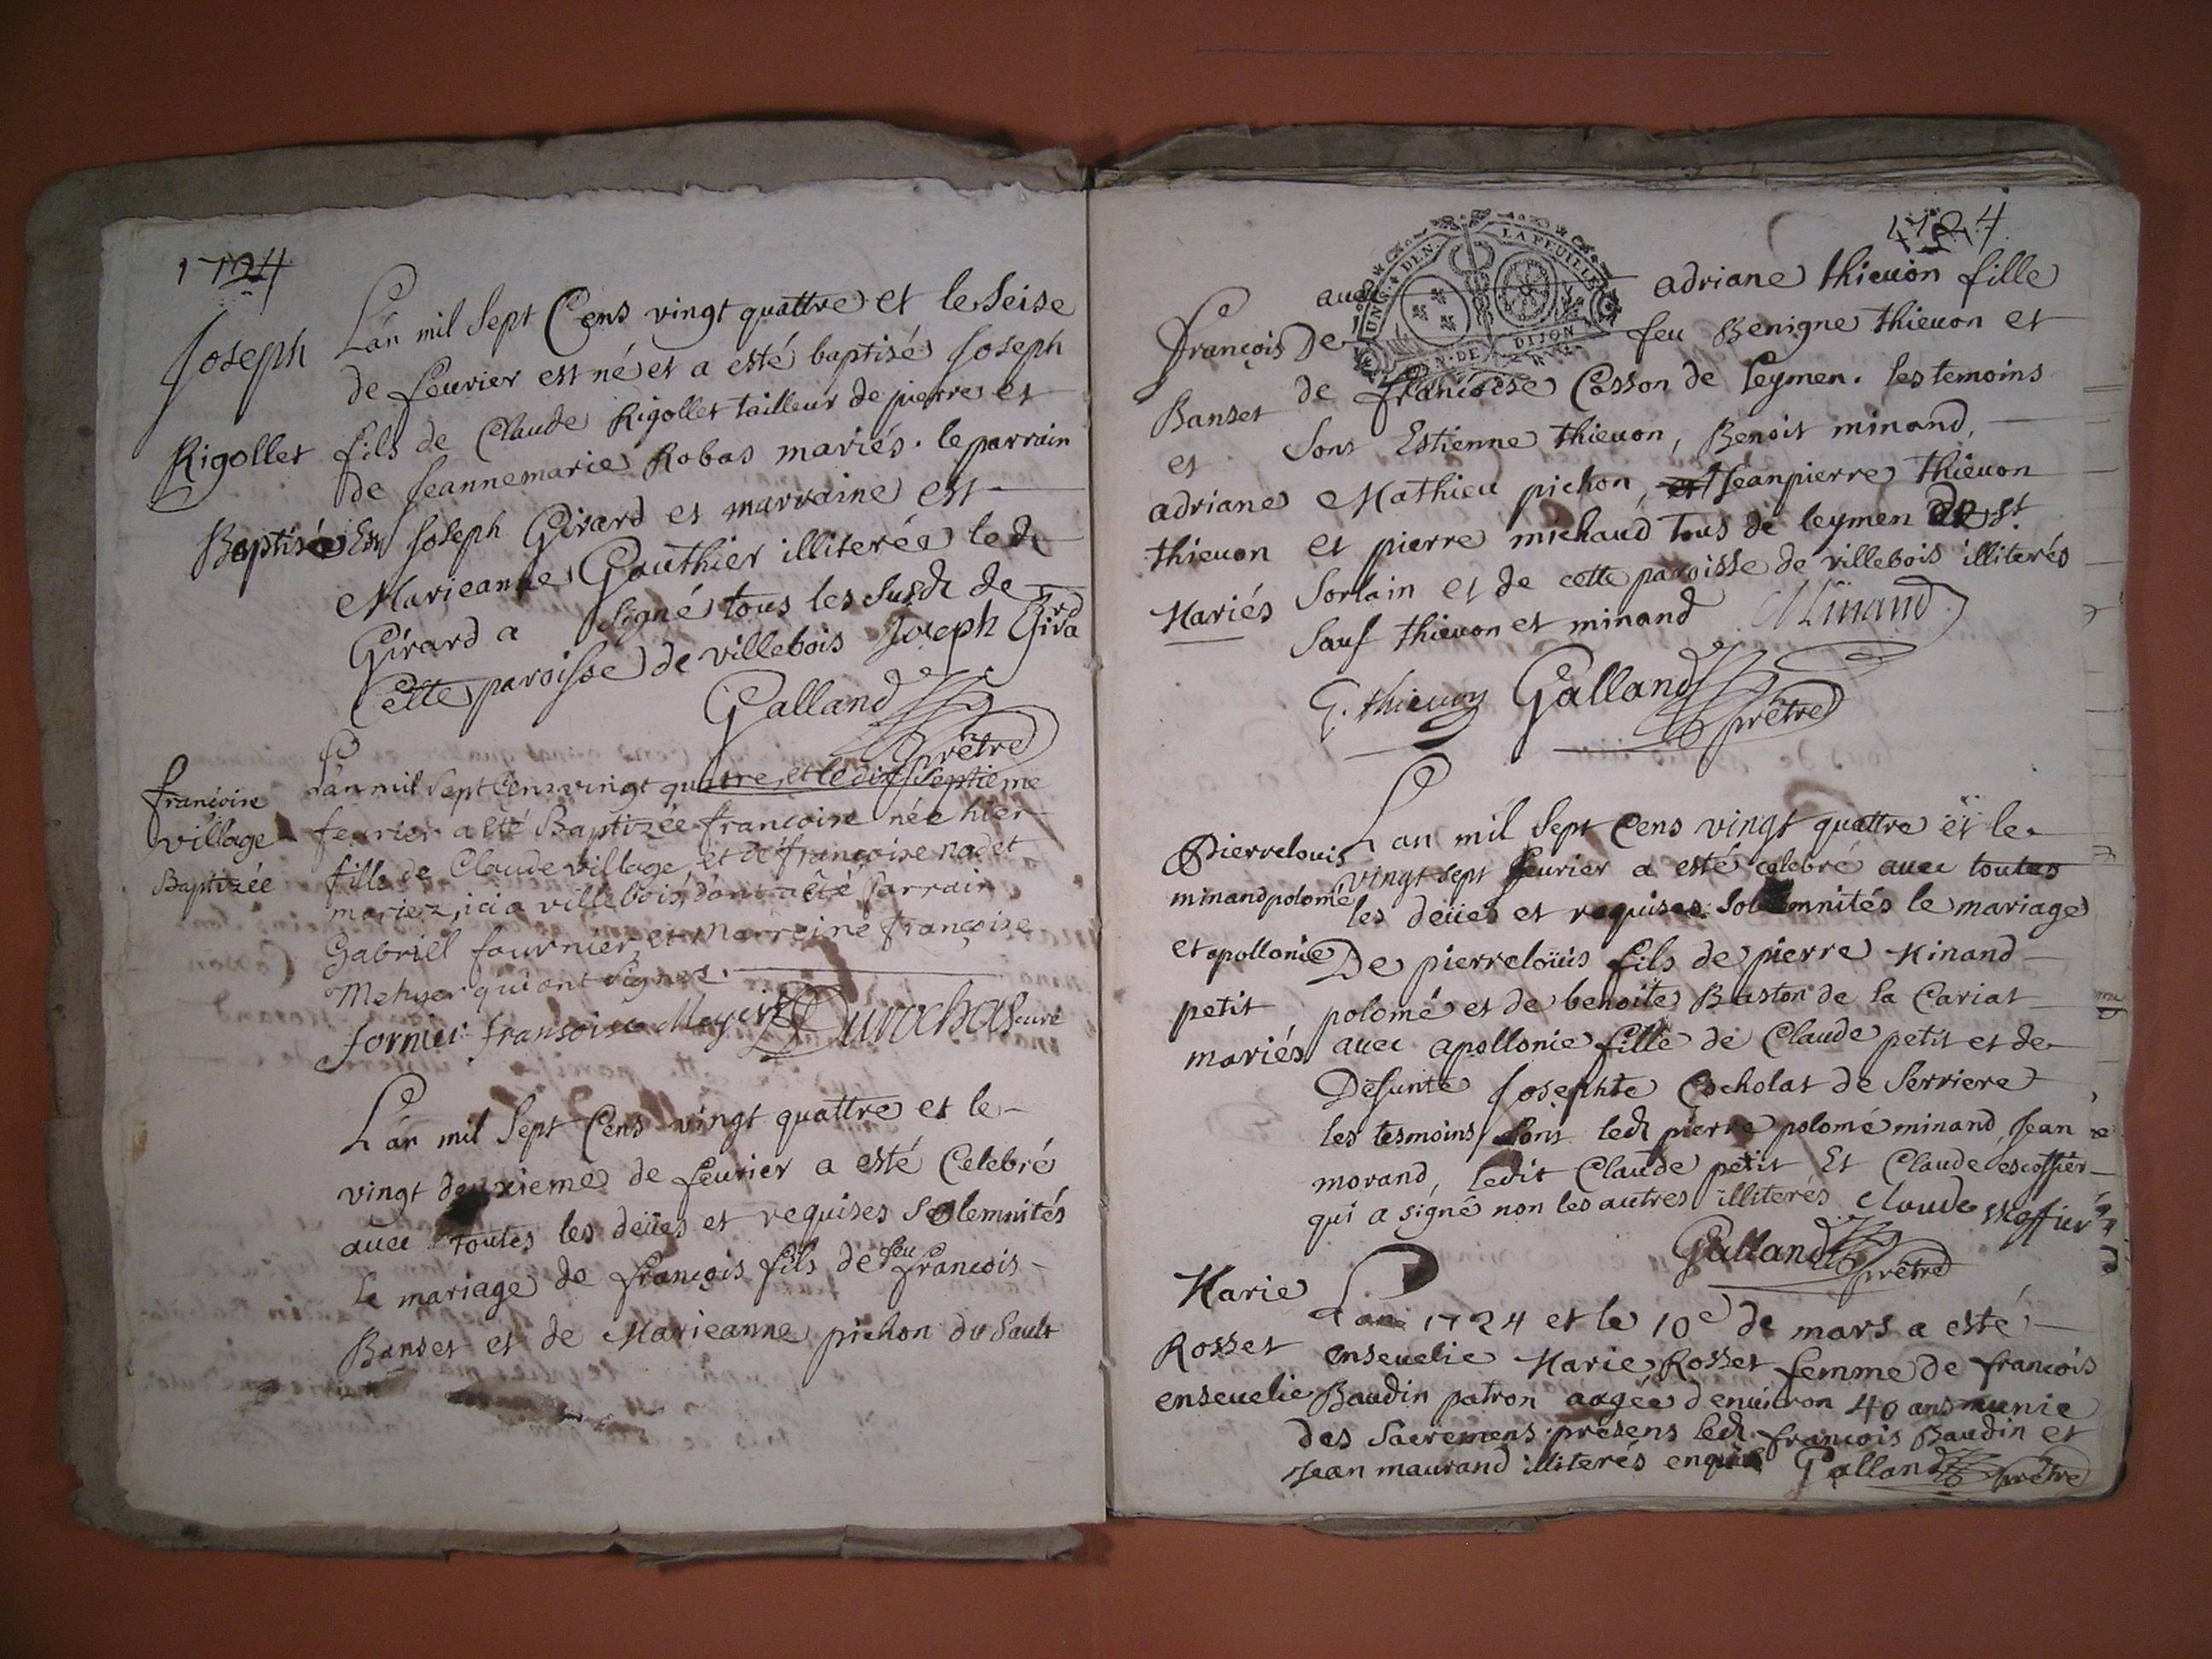 1724
Joseph
Rigollet
Baptisé
L'an mil sept Cens vingt quattre et le seise
de feurier est né et a esté baptisé Joseph
fils de Claude Rigollet tailleur de pierre et
de Jeannemarie Robas mariés. le parrain
Est Joseph Girard et marraine est
Marieanne Gauthier illiterée led.
Girard a signé tous les susd. de
Cette paroisse de villebois Joseph Girard
Galland
prêtre
françoise
village
Baptizée
L'an mil sept Cens vingt quatre, et le dix septième
feurier a été Baptizée françoise née hier
fille de Claude village, et de françoise nadet
mariez, ici a villebois, dont a été Parrain
Gabriel fournier, et Marreine françoise
qui ont signez.
fornier fransoise Durochat curé
L'an mil sept Cens vingt quattre et le
vingt deuxieme de feurier a esté Celebré
auec toutes les deües et requises Solemnités
le mariage de françois fils de feu françois
Banset et de Marieanne pichon du Sault
1724
UN. DEN. LA FEUILLE
G.N. DE DIJON
françois
Banset
et
adriane
thieuon
Mariés
auec adriane thieuon fille
De feu Benigne thieuon et
de françoise Casson de leymen. les temoins
Sont Estienne thieuon, Benoit minand,
Mathieu pichon, et Jeanpierre thieuon
et pierre michaud tous de leymen de St.
Sorlain et de cette paroisse de villebois illiterés
Sauf thieuon et minand Minand
E. thieuon Galland
prêtre
Pierrelouis
minandpolomé
et apollonie
petit
mariés
L'an mil sept Cens vingt quattre et le
vingt sept feurier a esté celebré auec toutes
les deües et requises Solemnités le mariage
De pierreloüis fils de pierre Minand
polomé et de benoite Baston de la Cariat
auec apollonie fille de Claude petit et de
Defunte Josephte Cocholat de Serriere
les tesmoins sont led. pierre polomé minand, Jean
morand, ledit Claude petit Et Claude escoffier
qui a signé non les autres illiterés Claude escoffier
Galland
prêtre
Marie
Rosset
enseuelie
L'an 1724 et le 10e de mars a esté
enseuelie Marie Rosset femme de françois
Baudin patron aagée d'enuiron 40 ans munie
des Sacremens. présens led. françois Baudin et
Jean maurand illiterés enquis Galland prêtre